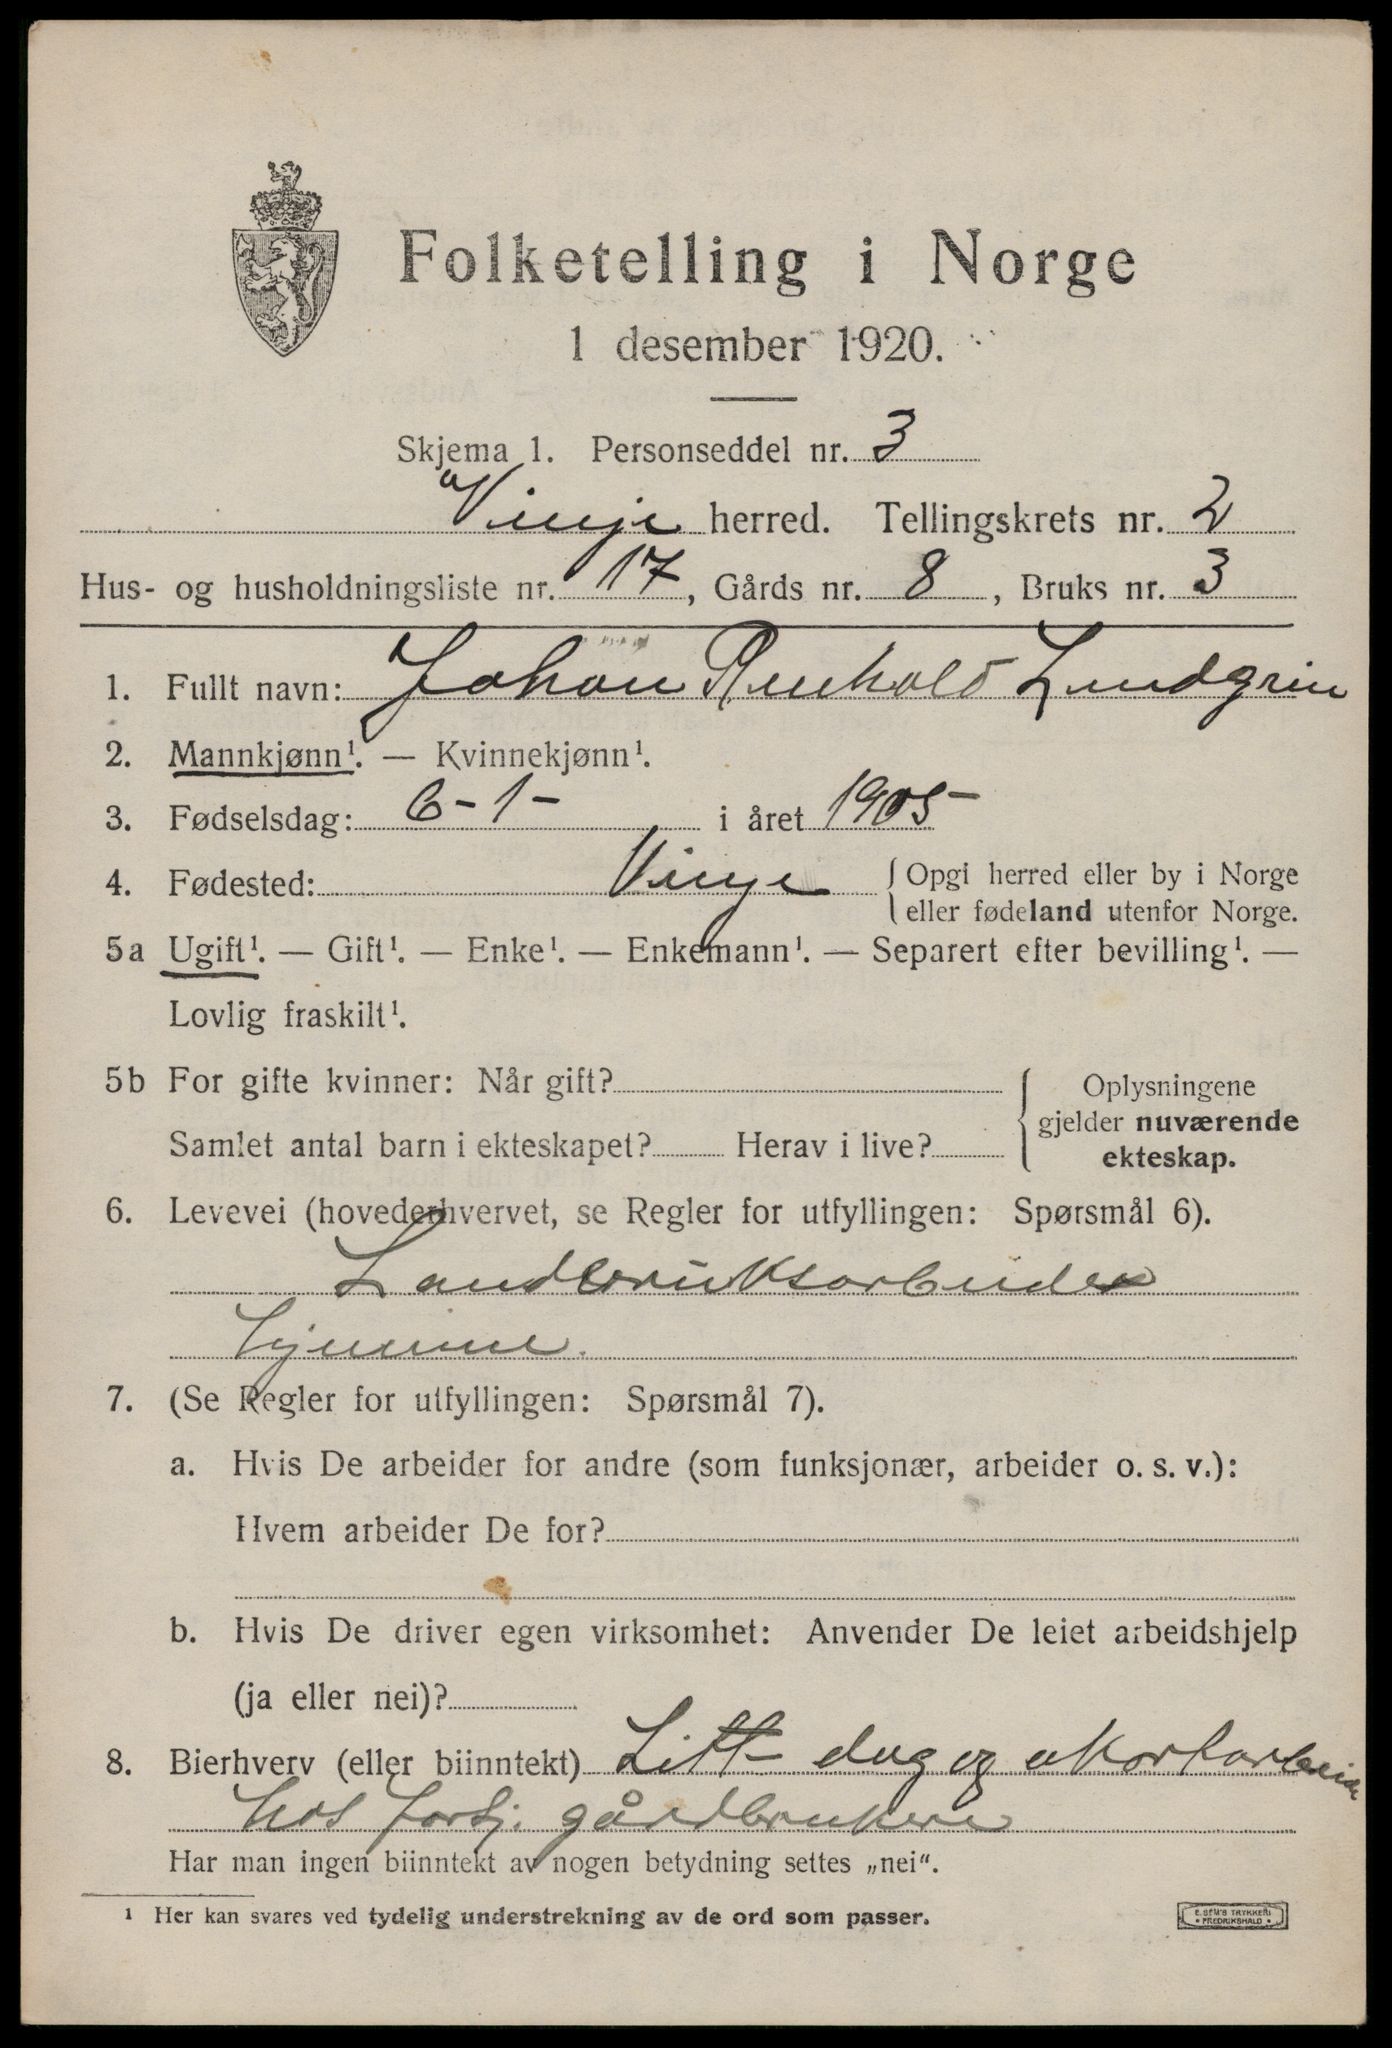 Folketelling i Norge
1 desember 1920.
Skjema 1. Personseddel nr. 3
Vinje herred. Tellingskrets nr. 2
Hus- og husholdningsliste nr. 17, Gårds nr. 8, Bruks nr. 3
1. Fullt navn: Johan Reinhold Lundgrin
2. Mannkjønn¹. — Kvinnekjønn¹.
3. Fødselsdag: 6-1- i året 1905-
4. Fødested: Vinje { Opgi herred eller by i Norge
eller fødeland utenfor Norge.
5a Ugift¹. — Gift¹. — Enke¹. — Enkemann¹. — Separert efter bevilling¹. —
Lovlig fraskilt¹.
5b For gifte kvinner: Når gift? { Oplysningene
gjelder nuværende
Samlet antal barn i ekteskapet? Herav i live?
ekteskap.
6. Levevei (hovederhvervet, se Regler for utfyllingen: Spørsmål 6).
Landbruksarbeider
hjemme.
7. (Se Regler for utfyllingen: Spørsmål 7).
a. Hvis De arbeider for andre (som funksjonær, arbeider o. s. v.):
Hvem arbeider De for?
b. Hvis De driver egen virksomhet: Anvender De leiet arbeidshjelp
(ja eller nei)?
8. Bierhverv (eller biinntekt) Litt dag og akortarbeide
hos forskj. gårdbrukere
Har man ingen biinntekt av nogen betydning settes „nei“.
¹ Her kan svares ved tydelig understrekning av de ord som passer.
E. SEM'S TRYKKERI
• FREDRIKSHALD •